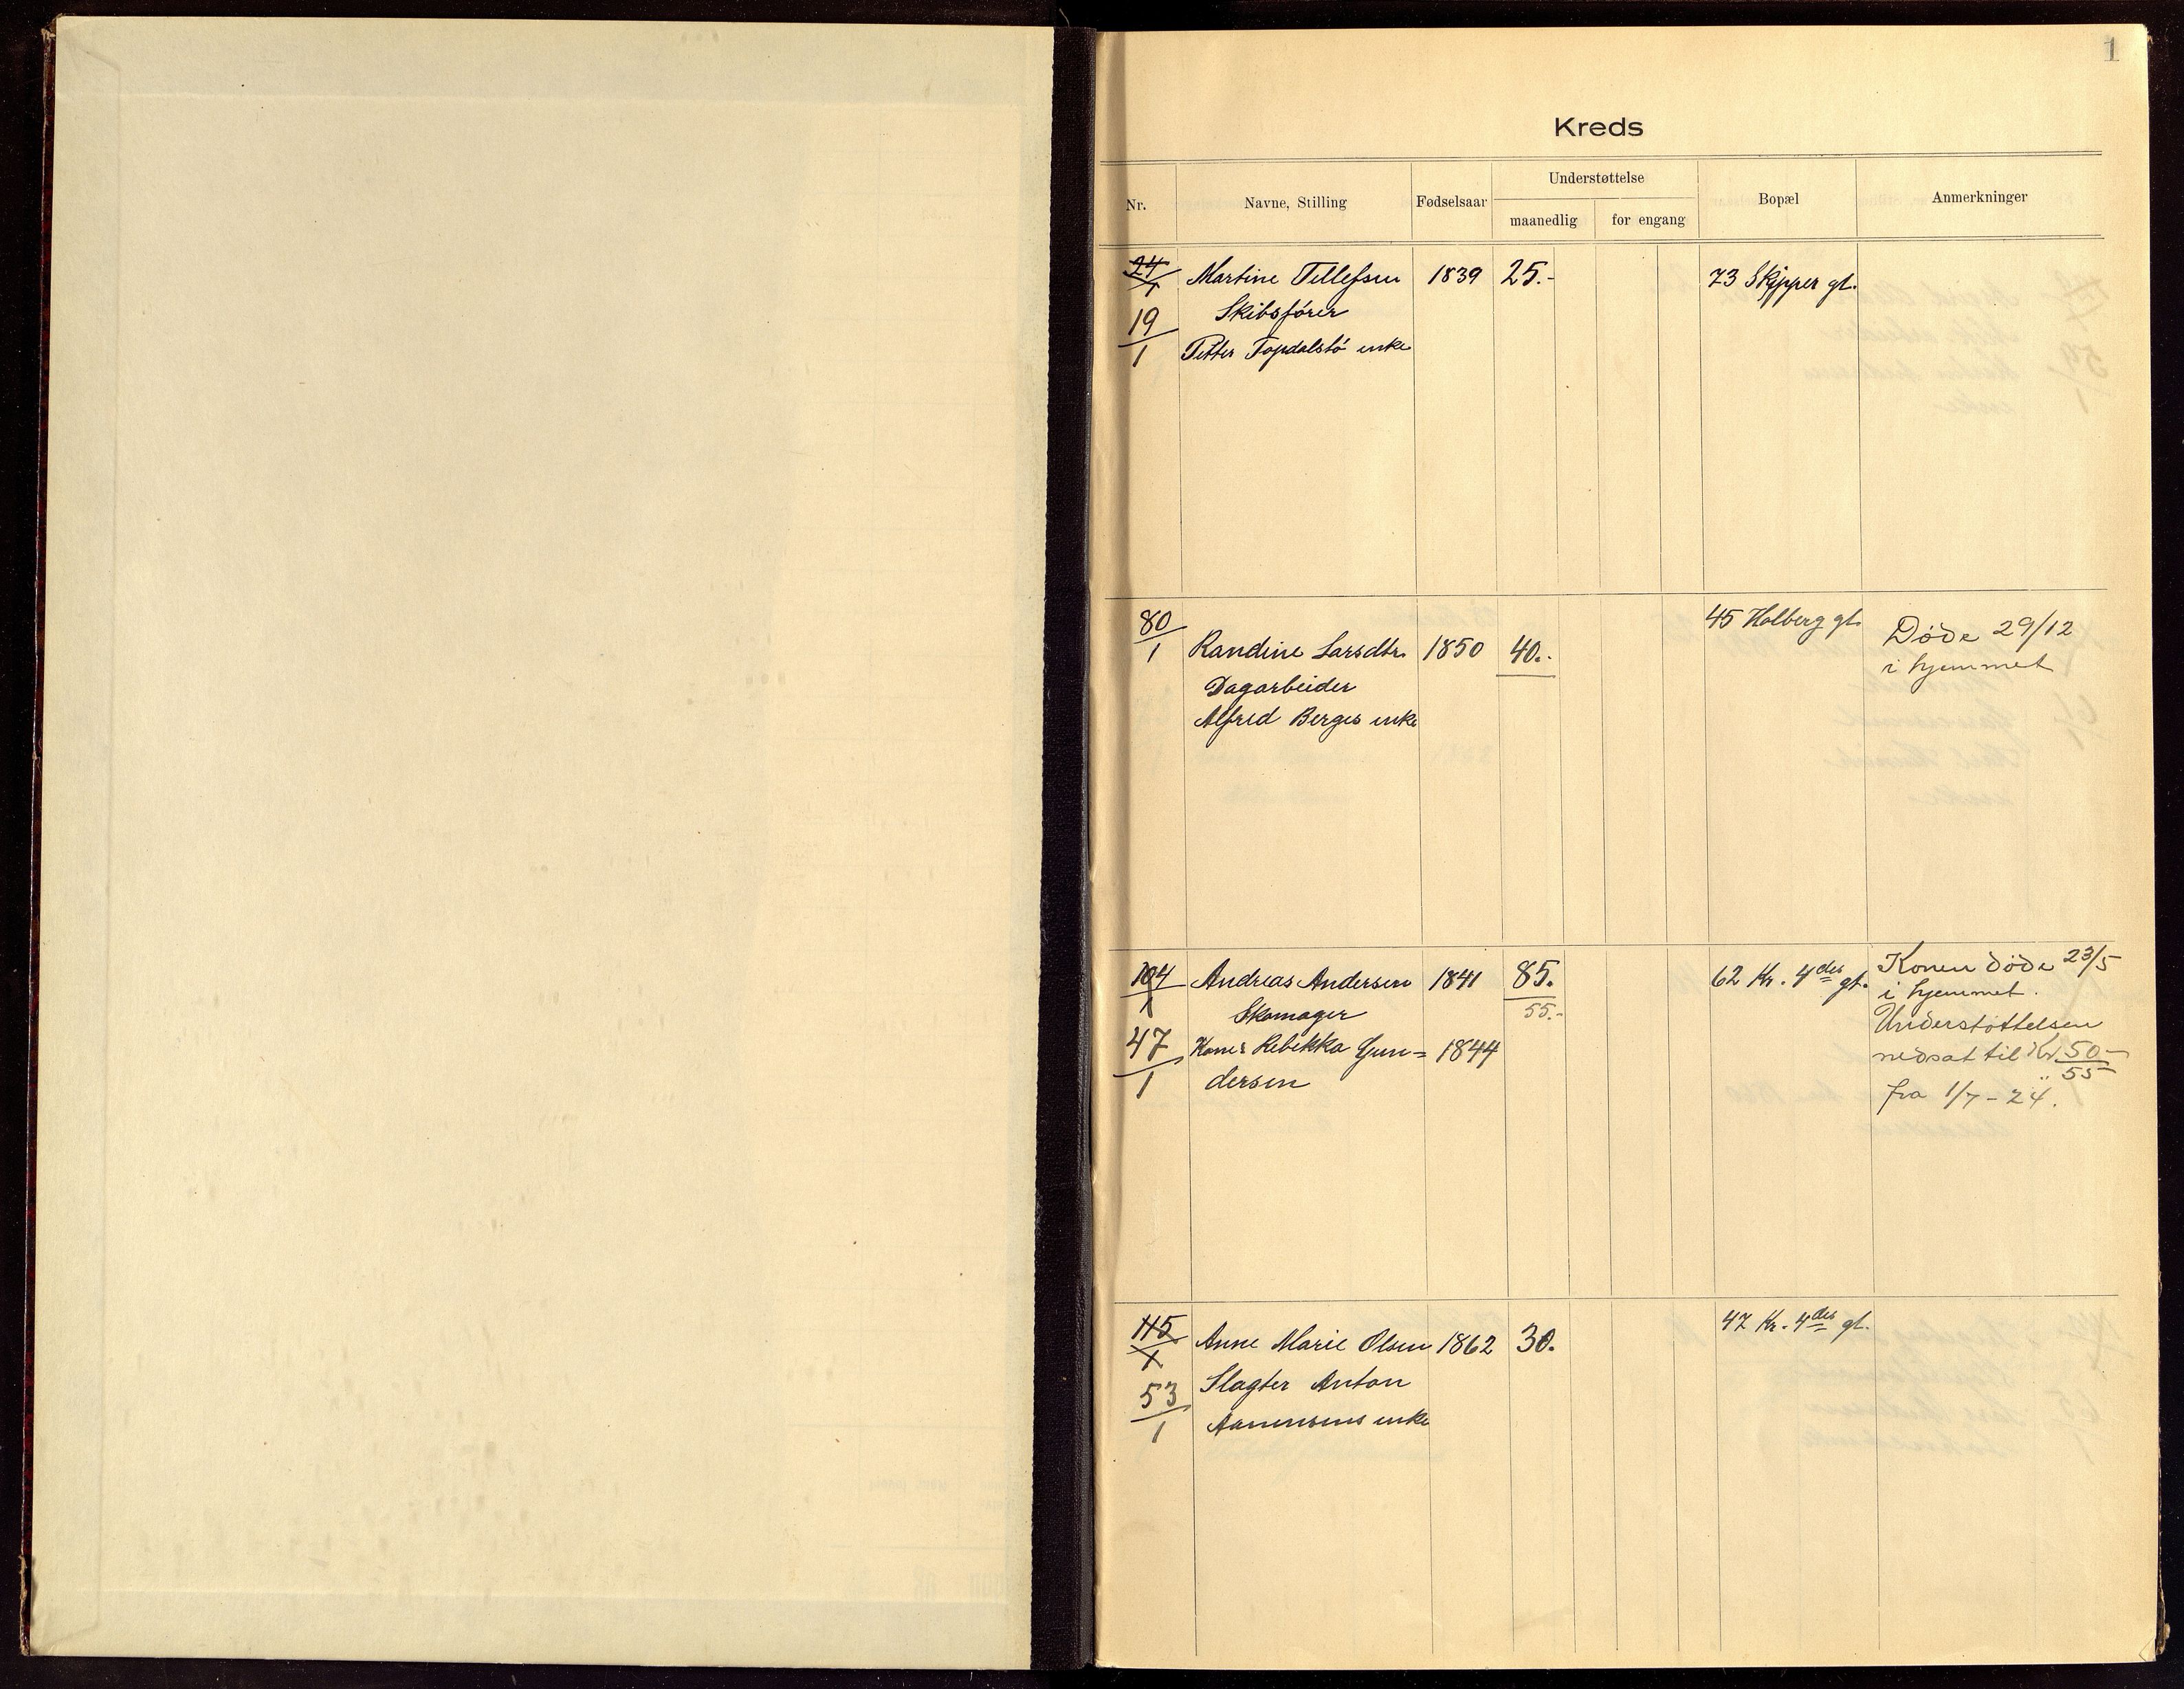 1
Kreds
Nr. Navne, Stilling Fødselsaar Understøttelse Bopæl Anmerkninger
maanedlig for engang
24/1 Martine Tellefsen 1839 25.- 73 Skipper gt.
19/1 Skibsfører
Petter Topdalslö enke
80/1 45 Holberg gt.
Randine Larsdtr. 1850 40.- Døde 29/12
Dagarbeider i hjemmet
Alfred Berges enke
104/1 Andreas Andersen 1841 85. 62 Kr. 4des gt. Konen døde 23/5
Skomager 55.- i hjemmet.
47/1 Kone: Rebekka Gun= 1844 Understøttelsen
dersen nedsat til Kr 50-
55
fra 1/7-24.
115/1 47 Kr. 4des gt.
Anne Marie Olsen 1862 30.
53/1 Slagter Anton
Aanensens enke